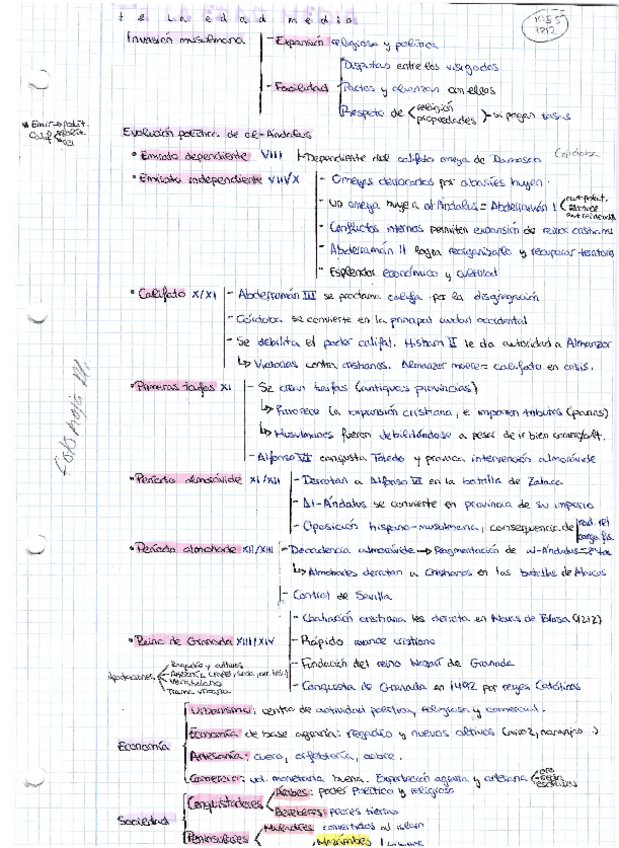 te la edad media
1085
1212
Invasión musulmana
- Expansión religiosa y política
- Facilidad
Disputas entre los visigodos
Pactos y alianzas con ellos
Respeto de religión propiedades - si pagan tasas
Evolución política de al-Ándalus
• Emirato dependiente VIII
Dependiente del califato omeya de Damasco
Córdoba
• Emirato independiente VIII/X
- Omeyas derrocados por abasíes huyen.
- un omeya huye a al-Ándalus = Abderramán I
- Conflictos internos permiten expansión de reinos cristianos
- Abderramán II logra reorganizarlo y recuperar territorio
- Esplendor económico y cultural
• Califato X/XI
- Abderramán III se proclama califa por la disgregación
- Córdoba se convierte en la principal ciudad occidental
- Se debilita el poder califal. Hisham II le da autoridad a Almanzor
↳ Victorias contra cristianos. Almanzor muere = califato en crisis.
• Primeras taifas XI
- Se crean taifas (antiguas provincias)
↳ Favorece la expansión cristiana, e imponen tributos (parias)
↳ Musulmanes fueron debilitándose a pesar de ir bien
- Alfonso VI conquista Toledo y provoca intervención almorávide
• Periodo almorávide XI/XII
- Derrotan a Alfonso VI en la batalla de Zalaca
- Al-Ándalus se convierte en provincia de su imperio
- Oposición hispano-musulmana, consecuencia de
• Periodo almohade XII/XIII
- Decadencia almorávide → Fragmentación de al-Ándalus =
↳ Almohades derrotan a cristianos en las batallas de Alarcos
- Control de Sevilla
- Coalición cristiana les derrota en Navas de Tolosa (1212)
• Reino de Granada XIII/XIV
- Rápido avance cristiano
- Fundación del reino Nazarí de Granada
- Conquista de Granada en 1492 por reyes Católicos
Aportaciones
Regadío y cultivos
Artesanía
Vocabulario
Trama urbana
Economía
Urbanismo: centro de actividad política, religiosa y comercial.
Economía de base agraria: regadío y nuevos cultivos (arroz, naranjo)
Artesanía: cuero, orfebrería, cobre.
Comercio: ud. monetaria buena. Exportación agraria y artesana
oro
esclavos
Sociedad
Conquistadores
Árabes: poder político y religioso
Bereberes: peores tierras
Peninsulares
Muladíes convertidos al islam
Mozárabes